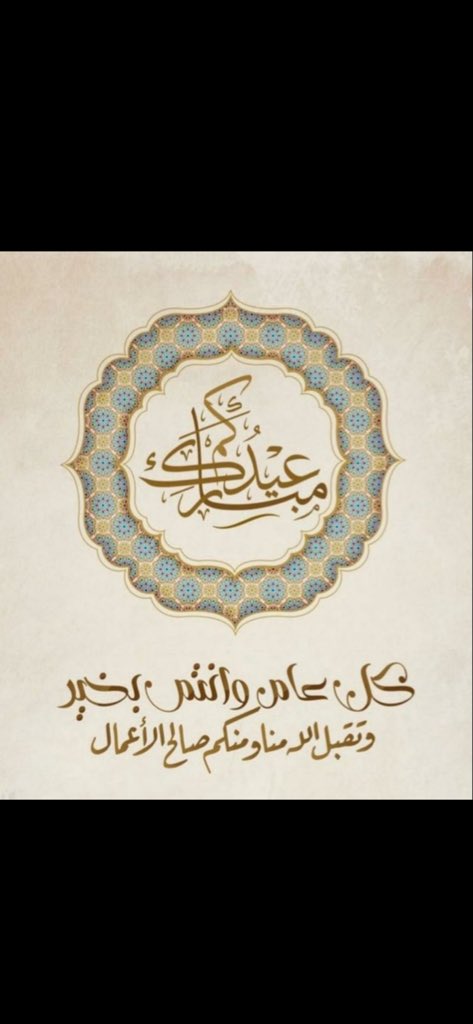 عيدُكُم
مبارك
كل عام وانتم بخير
وتقبل الله منا ومنكم صالح الأعمال